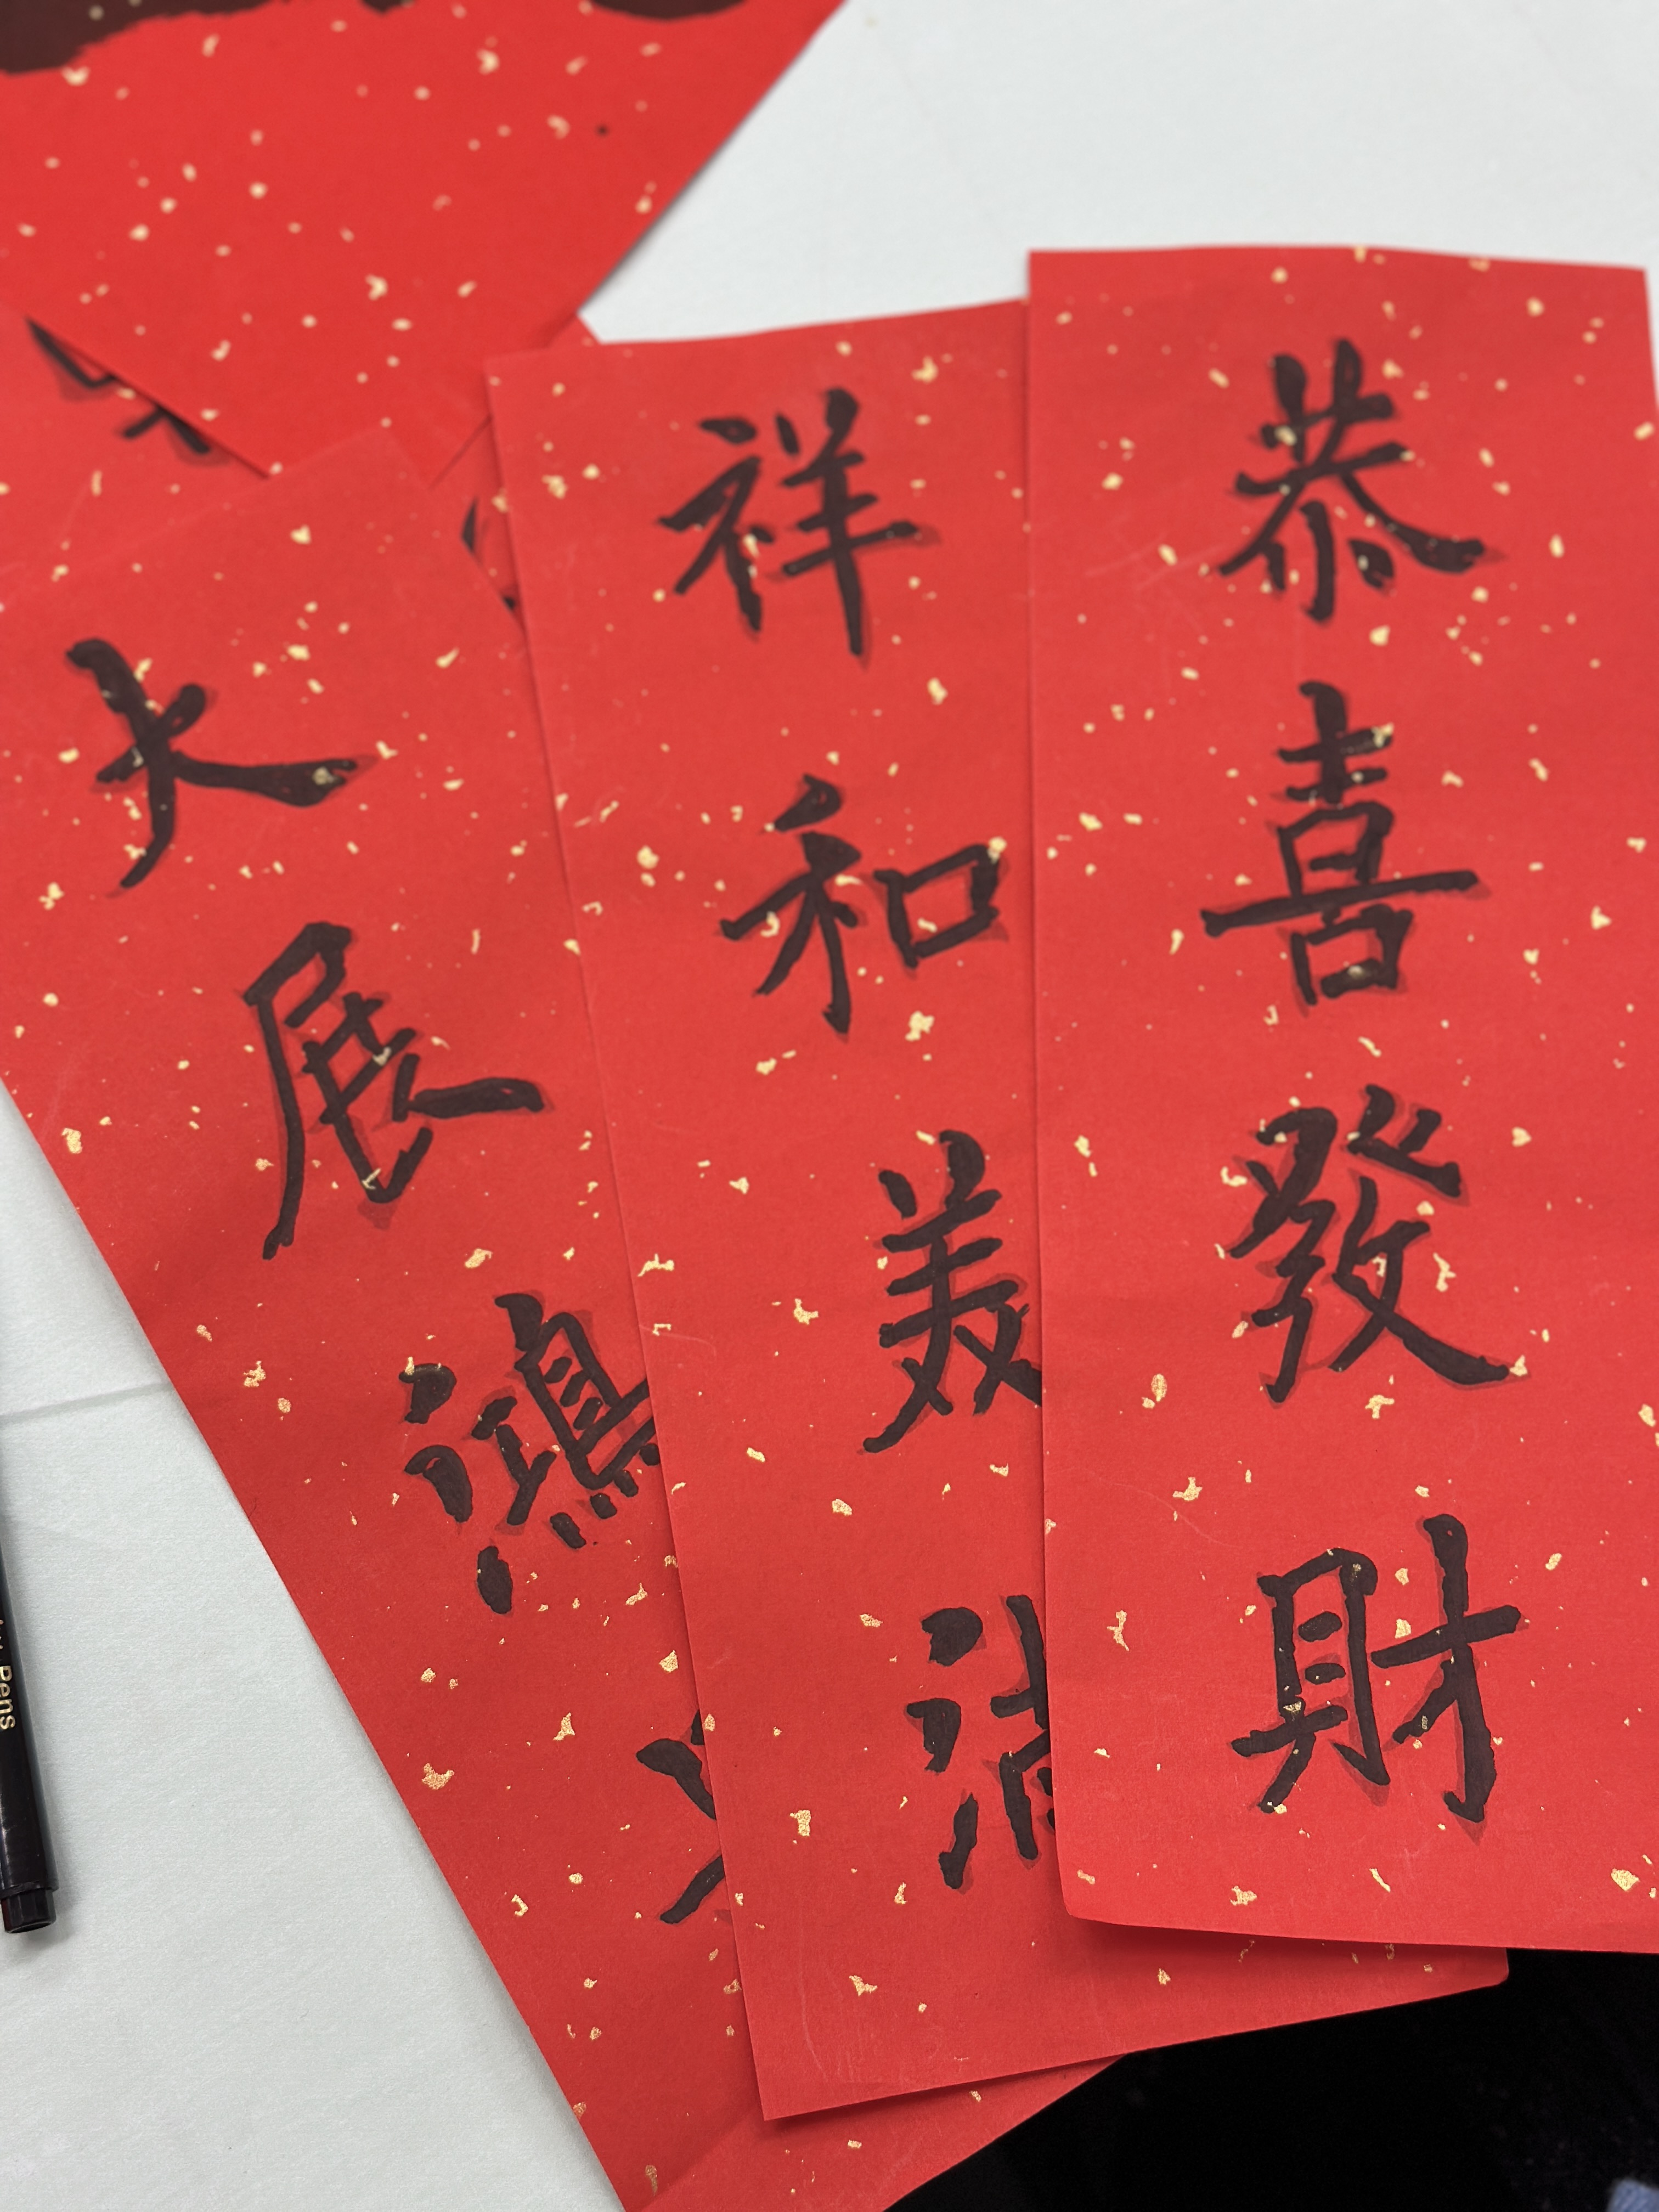 恭喜發財
祥和美滿
大展鴻
Pens